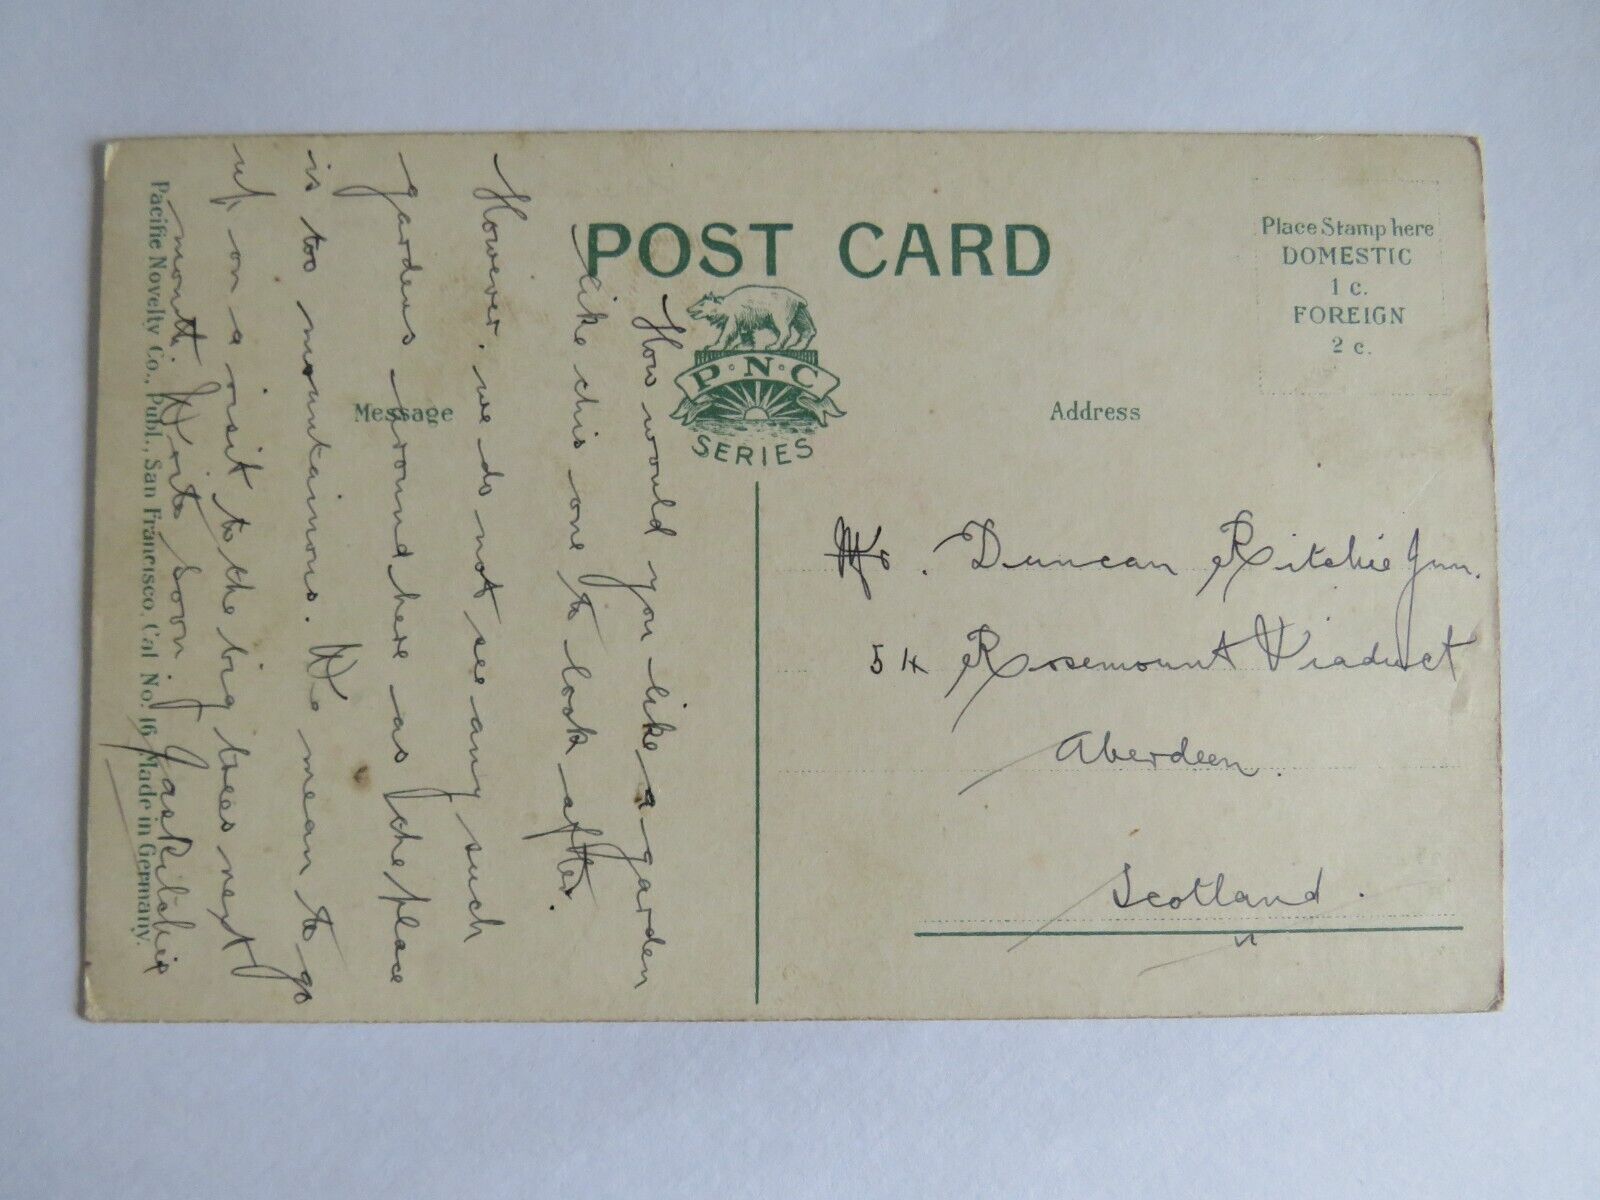 POST CARD
P·N·C
SERIES
Place Stamp here
DOMESTIC
1 c.
FOREIGN
2 c.
Message
Address
How would you like a garden
like this one to look after.
However. we do not see any such
gardens around here as the place
is too mountainous. We mean to go
up on a visit to the big trees next
month. Write soon. Jas Ritchie
Mr. Duncan Ritchie Jnn.
54 Rosemount Viaduct
Aberdeen.
Scotland.
Pacific Novelty Co., Publ., San Francisco, Cal No. 16 Made in Germany.